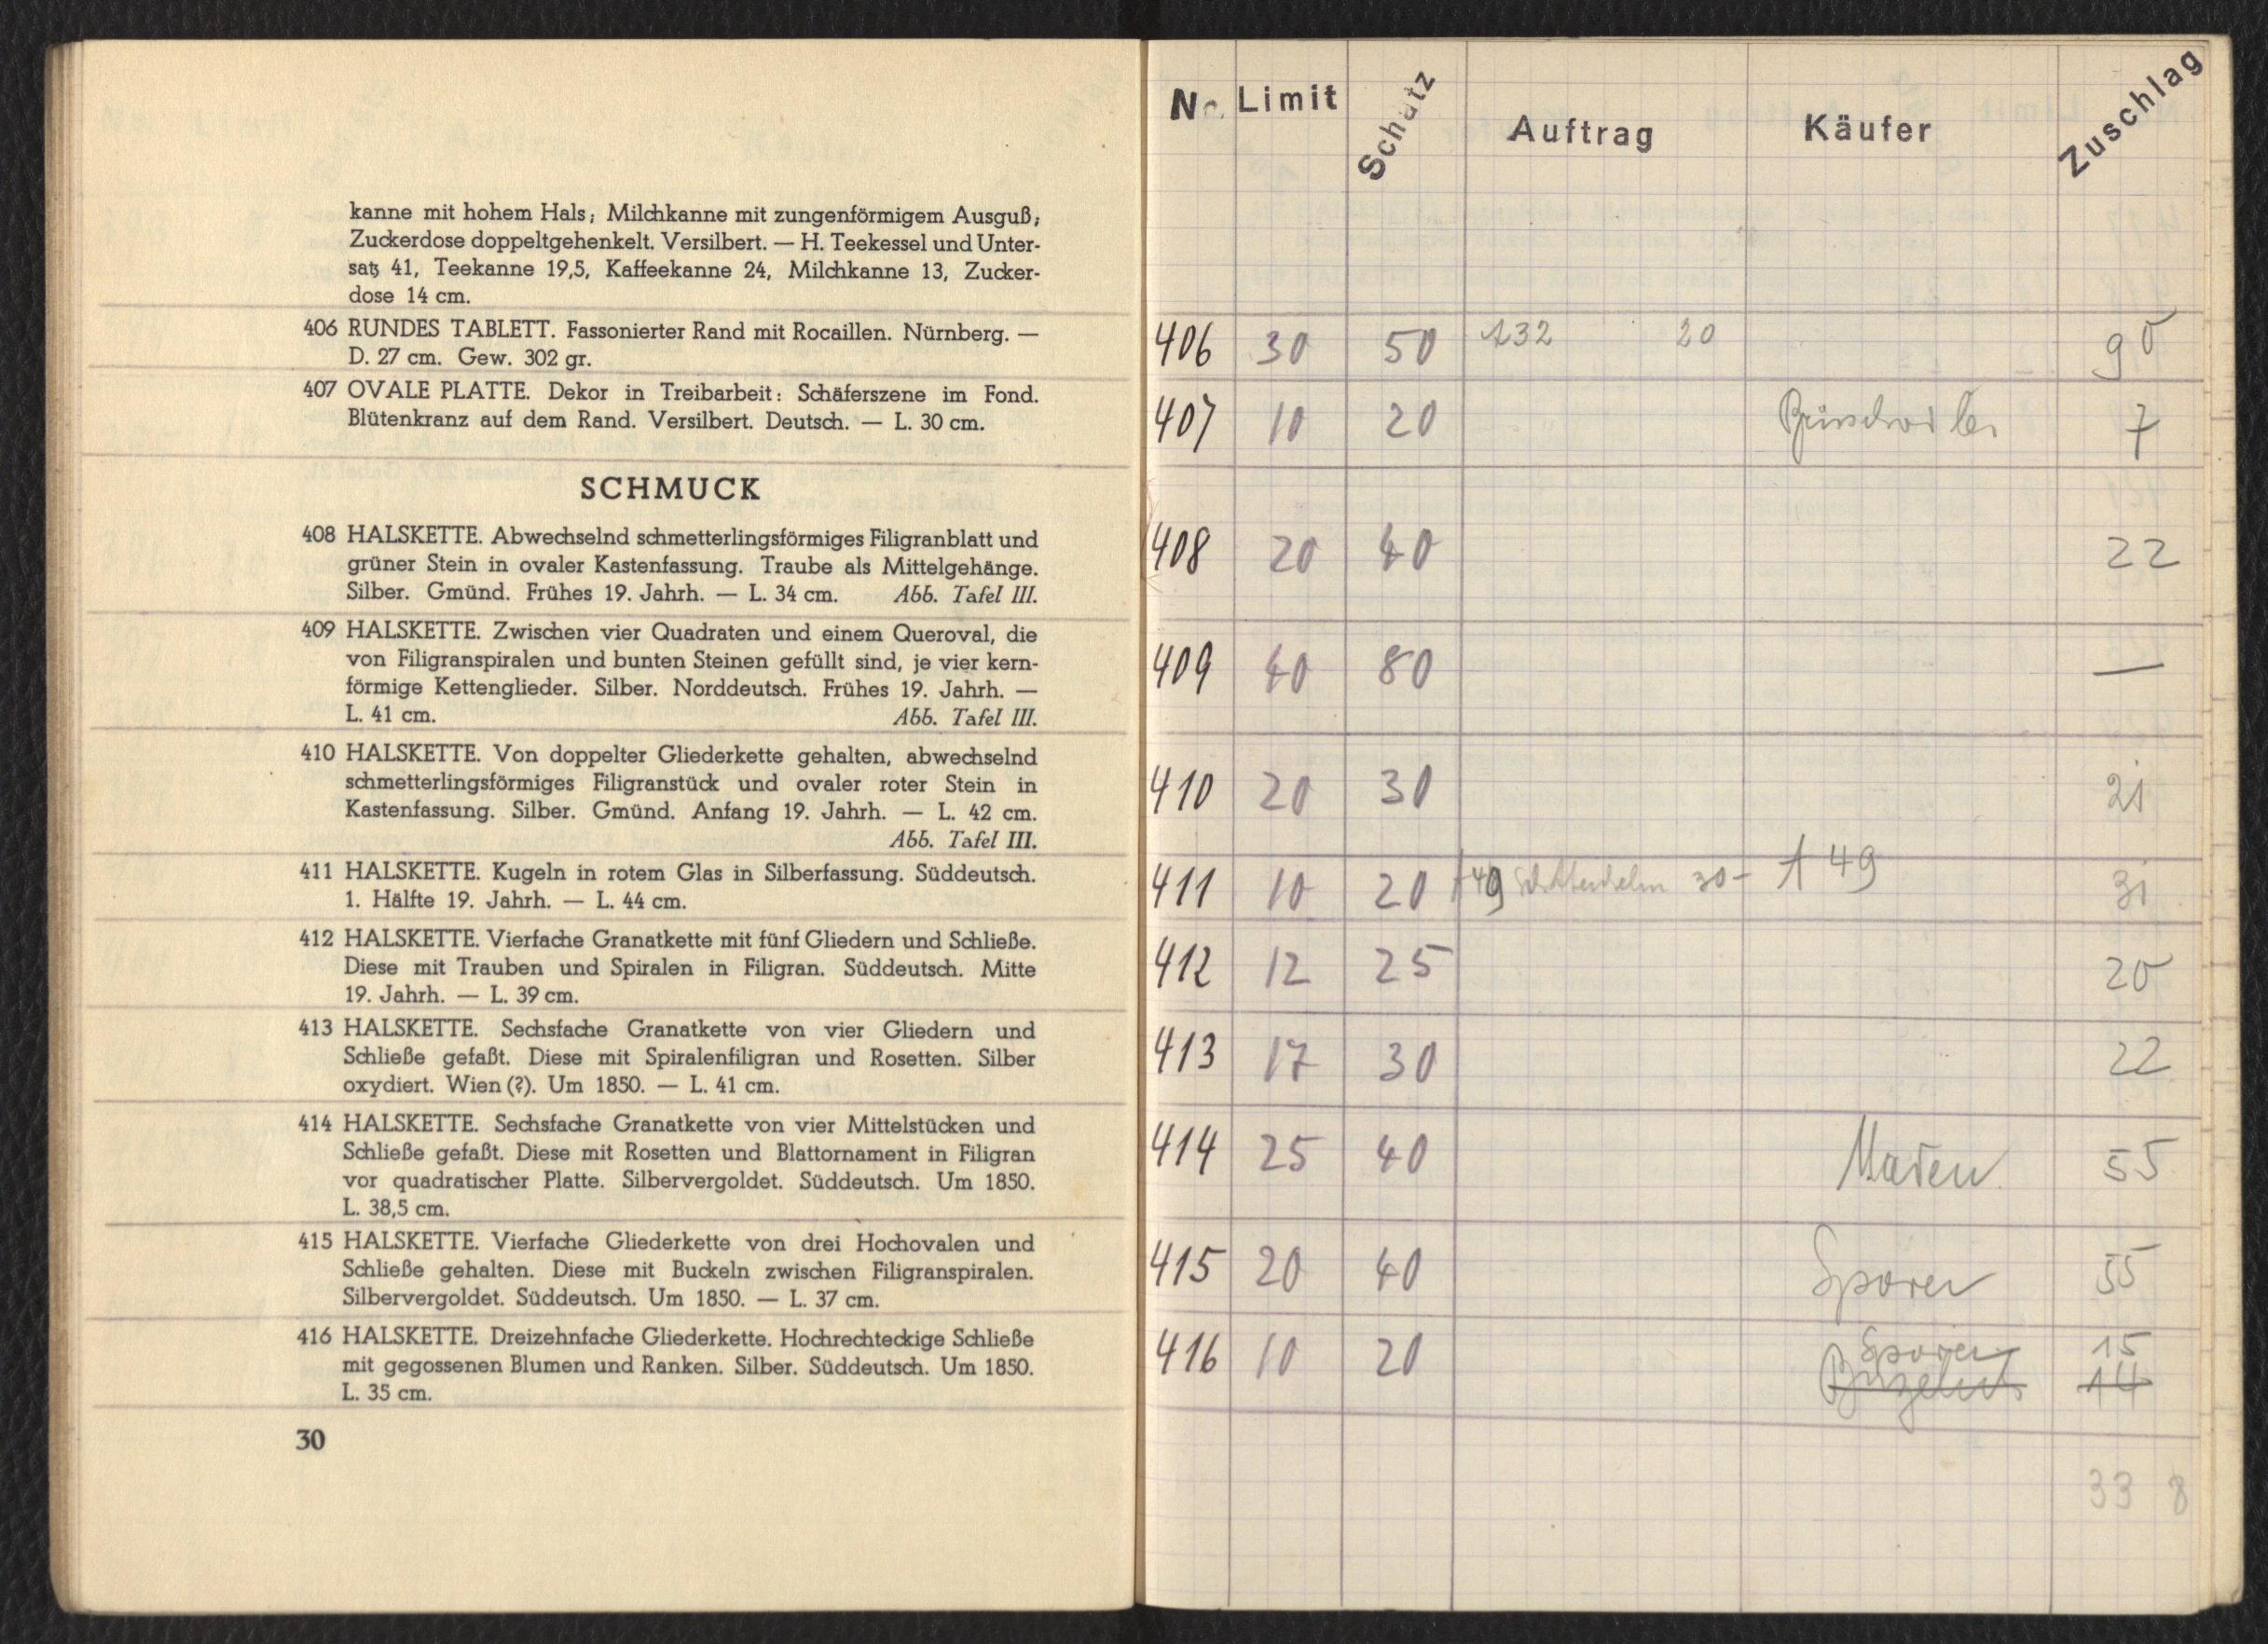 kanne mit hohem Hals; Milchkanne mit zungenförmigem Ausguß;
Zuckerdose doppeltgehenkelt. Versilbert. — H. Teekessel und Unter-
satz 41, Teekanne 19,5, Kaffeekanne 24, Milchkanne 13, Zucker-
dose 14 cm.
406 RUNDES TABLETT. Fassonierter Rand mit Rocaillen. Nürnberg. —
D. 27 cm. Gew. 302 gr.
407 OVALE PLATTE. Dekor in Treibarbeit: Schäferszene im Fond.
Blütenkranz auf dem Rand. Versilbert. Deutsch. — L. 30 cm.
SCHMUCK
408 HALSKETTE. Abwechselnd schmetterlingsförmiges Filigranblatt und
grüner Stein in ovaler Kastenfassung. Traube als Mittelgehänge.
Silber. Gmünd. Frühes 19. Jahrh. — L. 34 cm. Abb. Tafel III.
409 HALSKETTE. Zwischen vier Quadraten und einem Queroval, die
von Filigranspiralen und bunten Steinen gefüllt sind, je vier kern-
förmige Kettenglieder. Silber. Norddeutsch. Frühes 19. Jahrh. —
L. 41 cm. Abb. Tafel III.
410 HALSKETTE. Von doppelter Gliederkette gehalten, abwechselnd
schmetterlingsförmiges Filigranstück und ovaler roter Stein in
Kastenfassung. Silber. Gmünd. Anfang 19. Jahrh. — L. 42 cm.
Abb. Tafel III.
411 HALSKETTE. Kugeln in rotem Glas in Silberfassung. Süddeutsch.
1. Hälfte 19. Jahrh. — L. 44 cm.
412 HALSKETTE. Vierfache Granatkette mit fünf Gliedern und Schließe.
Diese mit Trauben und Spiralen in Filigran. Süddeutsch. Mitte
19. Jahrh. — L. 39 cm.
413 HALSKETTE. Sechsfache Granatkette von vier Gliedern und
Schließe gefaßt. Diese mit Spiralenfiligran und Rosetten. Silber
oxydiert. Wien (?). Um 1850. — L. 41 cm.
414 HALSKETTE. Sechsfache Granatkette von vier Mittelstücken und
Schließe gefaßt. Diese mit Rosetten und Blattornament in Filigran
vor quadratischer Platte. Silbervergoldet. Süddeutsch. Um 1850.
L. 38,5 cm.
415 HALSKETTE. Vierfache Gliederkette von drei Hochovalen und
Schließe gehalten. Diese mit Buckeln zwischen Filigranspiralen.
Silbervergoldet. Süddeutsch. Um 1850. — L. 37 cm.
416 HALSKETTE. Dreizehnfache Gliederkette. Hochrechteckige Schließe
mit gegossenen Blumen und Ranken. Silber. Süddeutsch. Um 1850.
L. 35 cm.
30
No. Limit Schätz Auftrag Käufer Zuschlag
406 30 50 A32 20 90
407 10 20 7
408 20 40 22
409 40 80 —
410 20 30 21
411 10 20 A49 30- A 49 31
412 12 25 20
413 17 30 22
414 25 40 55
415 20 40 Sporer 55
416 10 20 Sporer 15
14
33 8